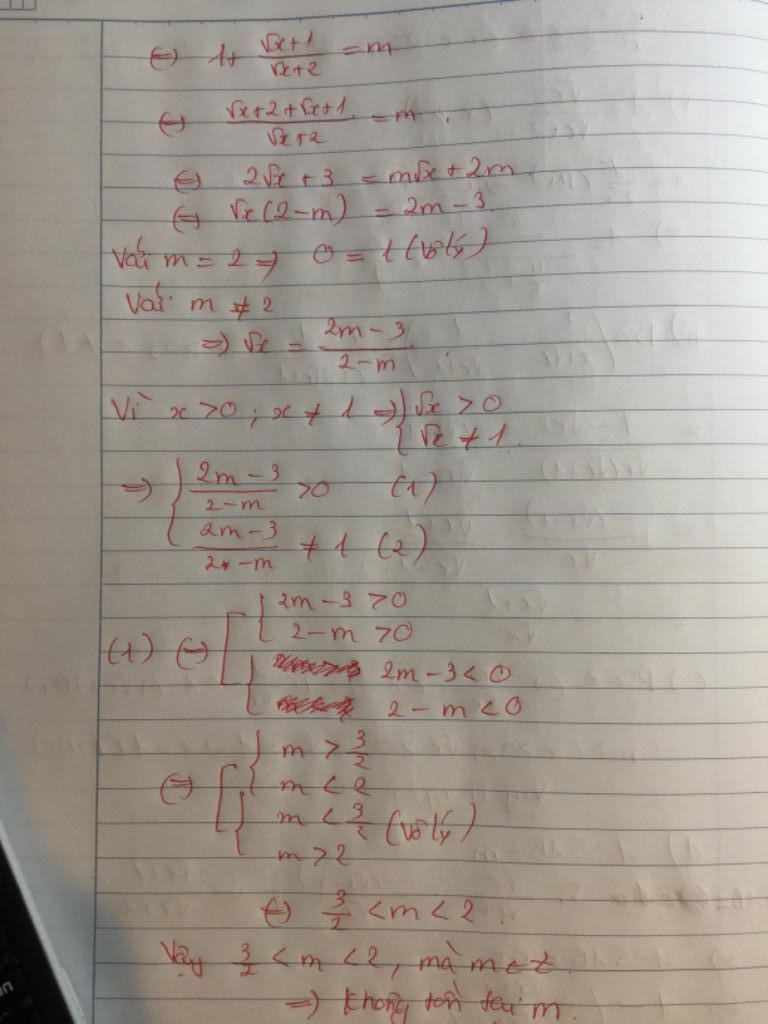 ⇔ 1 + (√x+1)/(√x+2) = m
⇔ (√x+2+√x+1)/(√x+2) = m.
⇔ 2√x + 3 = m√x + 2m
⇔ √x(2-m) = 2m - 3
Với m = 2 ⇒ 0 = 1 (Vô lý)
Với m ≠ 2
⇒ √x = (2m-3)/(2-m)
Vì x > 0 ; x ≠ 1 ⇒ { √x > 0
√x ≠ 1.
⇒ { (2m-3)/(2-m) > 0 (1)
(2m-3)/(2-m) ≠ 1 (2)
(1) ⇔ [ { 2m-3 > 0
2-m > 0
{ 2m-3 < 0
2-m < 0
⇔ [ { m > 3/2
m < 2
{ m < 3/2 (Vô lý)
m > 2
⇔ 3/2 < m < 2.
Vậy 3/2 < m < 2, mà m ∈ Z.
⇒ Không tồn tại m.